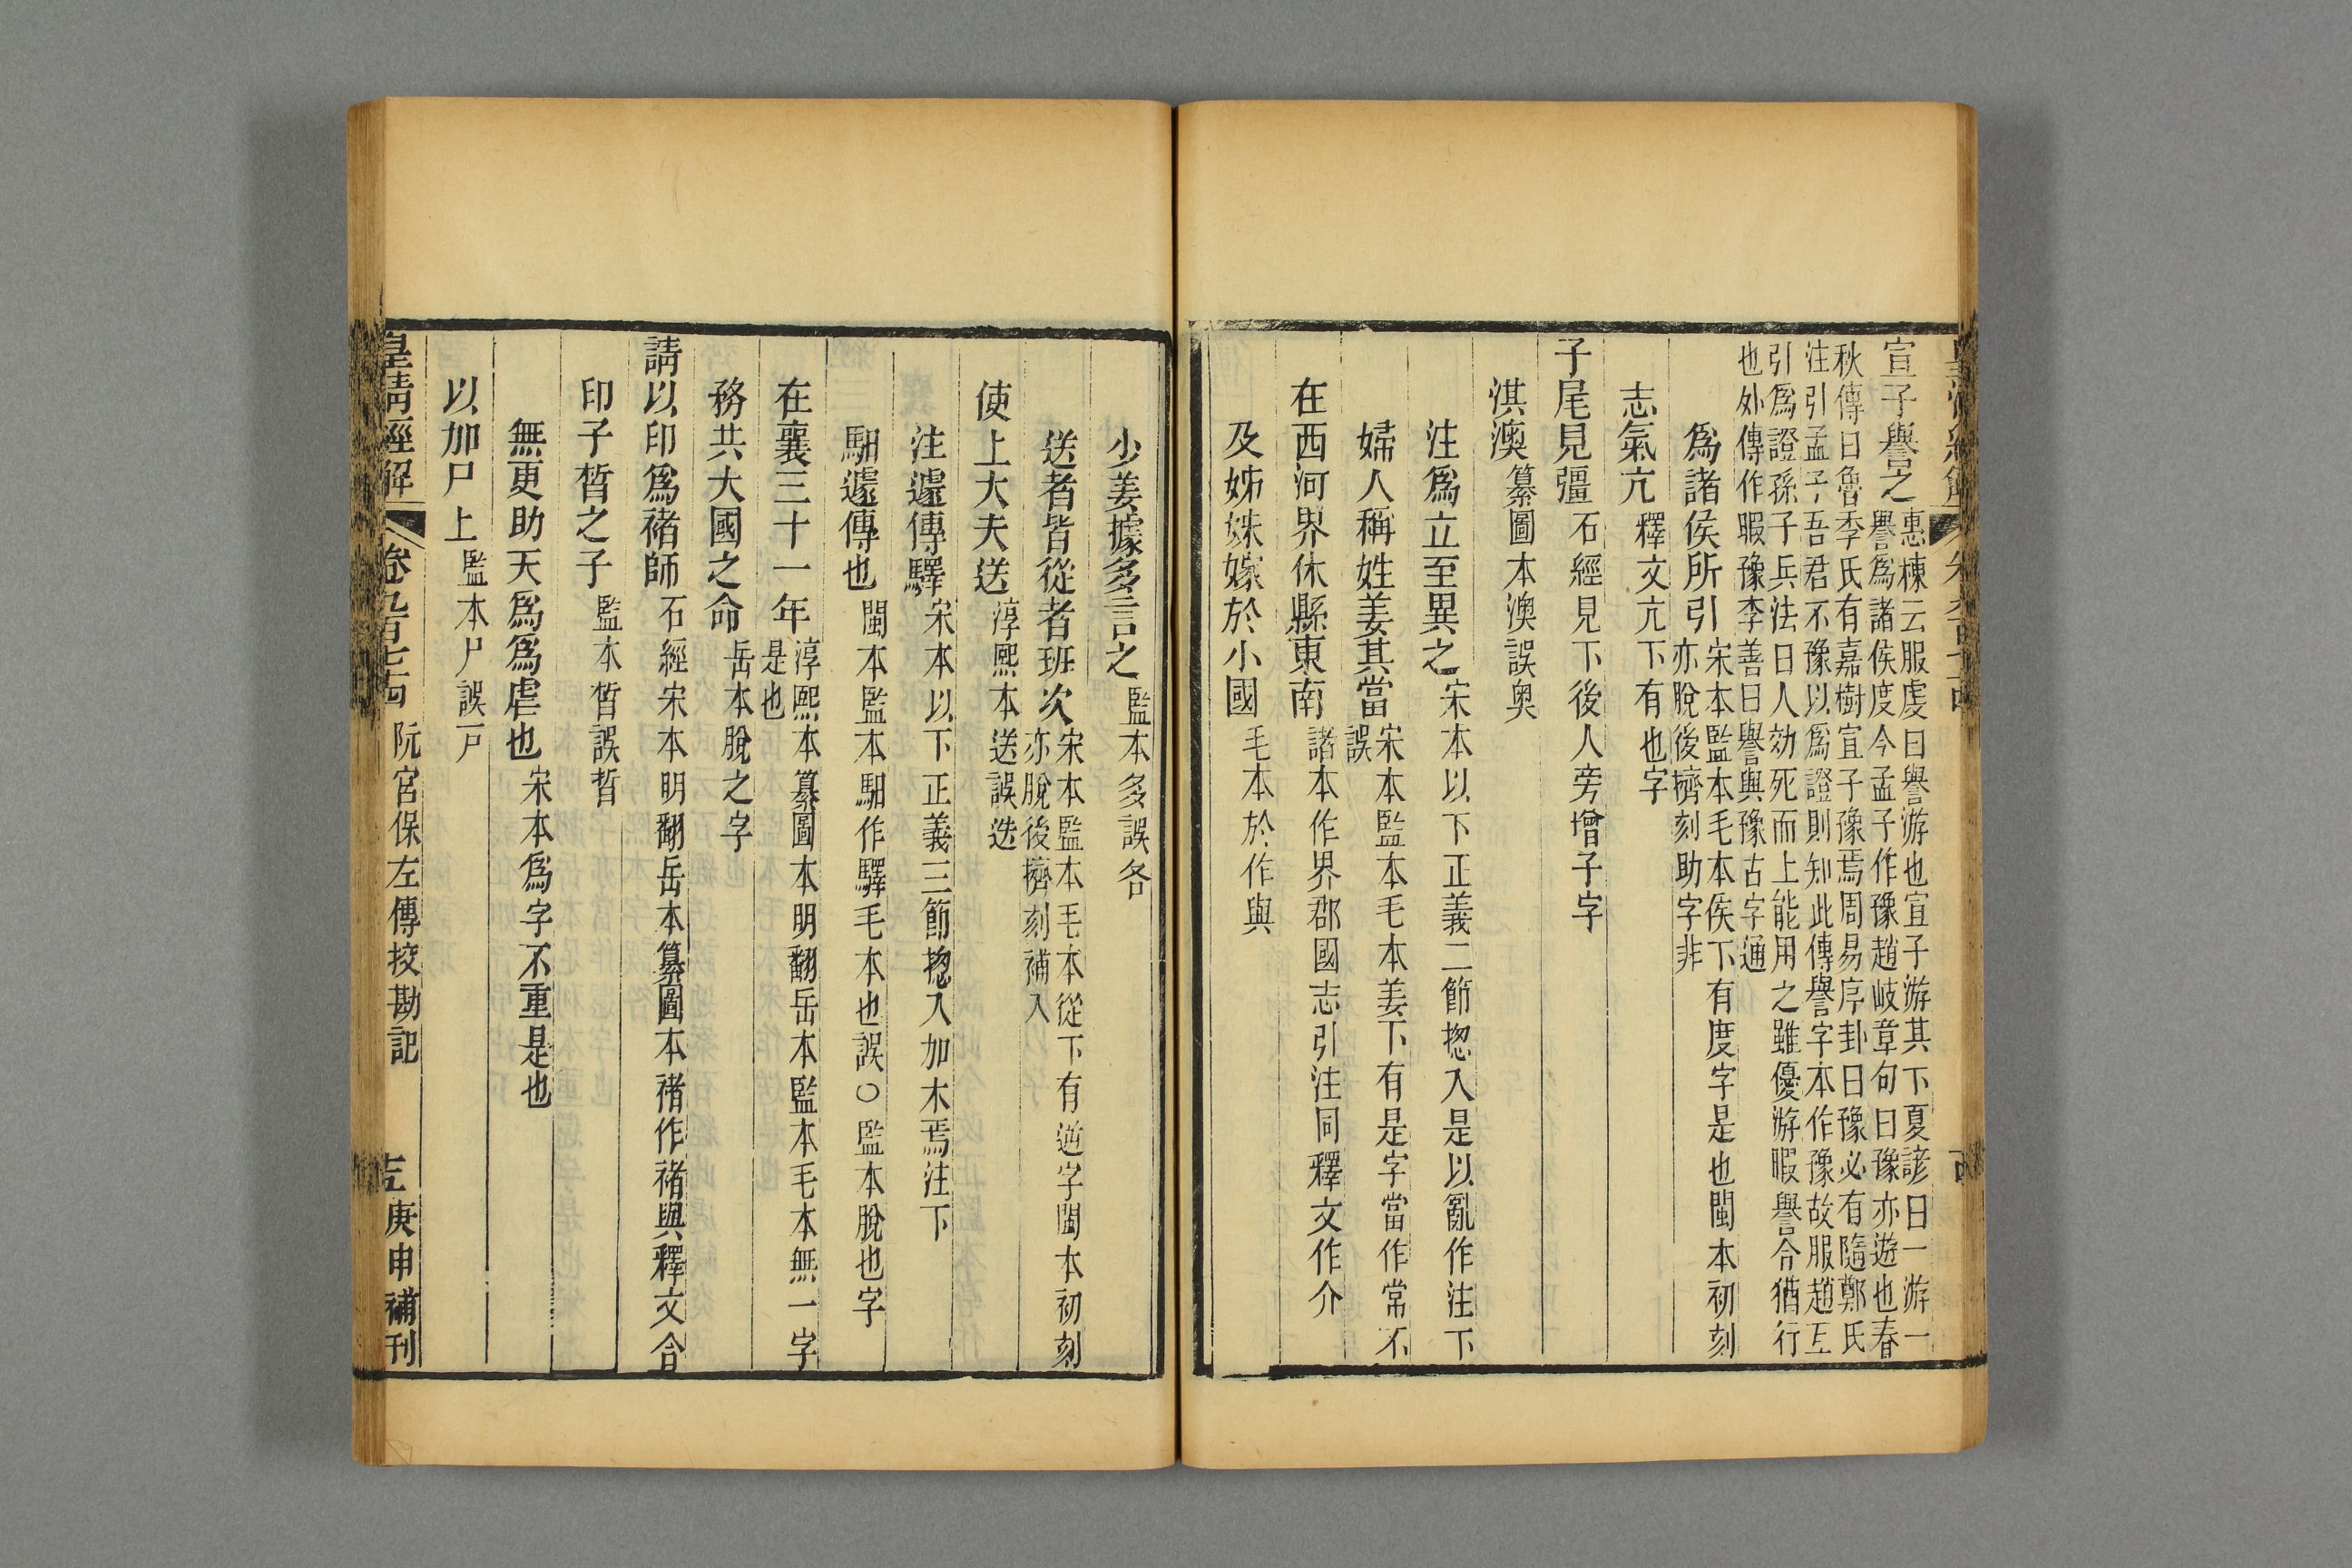 宣子譽之惠棟云服虔曰譽游也宣子游其下夏諺曰一游一
譽爲諸侯度今孟子作豫趙岐章句曰豫亦遊也春
秋傳曰魯季氏有嘉樹宣子豫焉周易序卦曰豫必有隨鄭氏
注引孟子吾君不豫以爲證則知此傳譽字本作豫故服趙互
引爲證孫子兵法曰人効死而上能用之雖優游暇譽令猶行
也外傳作暇豫李善曰譽與豫古字通
爲諸侯所引宋本監本毛本侯下有度字是也閩本初刻
亦脫後擠刻助字非
志氣亢釋文亢下有也字
子尾見彊石經見下後人旁增子字
淇澳纂圖本澳誤奥
注爲立至異之宋本以下正義二節揔入是以亂作注下
婦人稱姓姜其當宋本監本毛本姜下有是字當作常不
誤
在西河界休縣東南諸本作界郡國志引注同釋文作介
及姊妹嫁於小國毛本於作與
少姜據多言之監本多誤各
送者皆從者班次宋本監本毛本從下有逆字閩本初刻
亦脫後擠刻補入
使上大夫送淳熙本送誤迭
注遽傳驛宋本以下正義三節揔入加木焉注下
馹遽傳也閩本監本馹作驛毛本也誤○監本脫也字
在襄三十一年淳熙本纂圖本明翻岳本監本毛本無一字
是也
務共大國之命岳本脫之字
請以印爲褚師石經宋本明翻岳本纂圖本禇作褚與釋文合
印子晳之子監本晳誤皙
無更助天爲爲虐也宋本爲字不重是也
以加尸上監本尸誤戸
皇清經解 卷九百七十四 阮宮保左傳挍勘記 庚申補刊